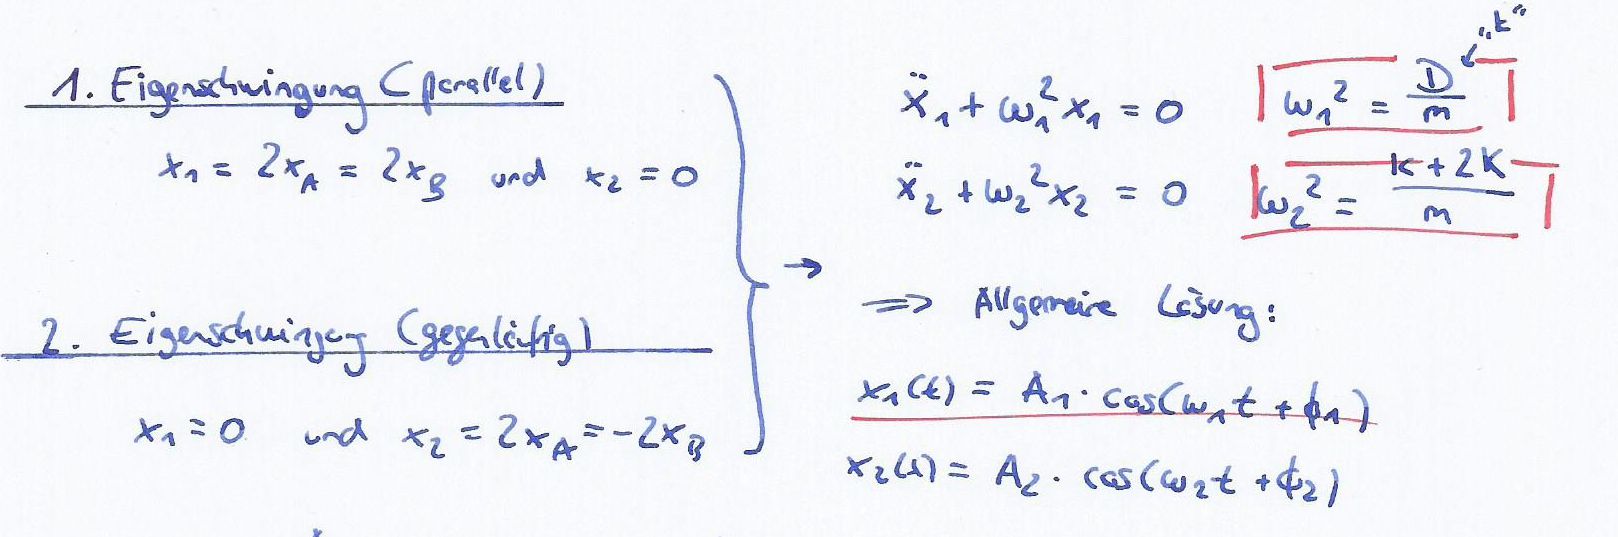 1. Eigenschwingung (parallel)
x₁ = 2x_A = 2x_B und x₂ = 0
2. Eigenschwingung (gegenläufig)
x₁ = 0 und x₂ = 2x_A = -2x_B
→
„k“
ẍ₁ + ω₁² x₁ = 0 ω₁² = D/m
ẍ₂ + ω₂² x₂ = 0 ω₂² = (k + 2K)/m
⇒ Allgemeine Lösung:
x₁(t) = A₁ · cos(ω₁t + ϕ₁)
x₂(t) = A₂ · cos(ω₂t + ϕ₂)